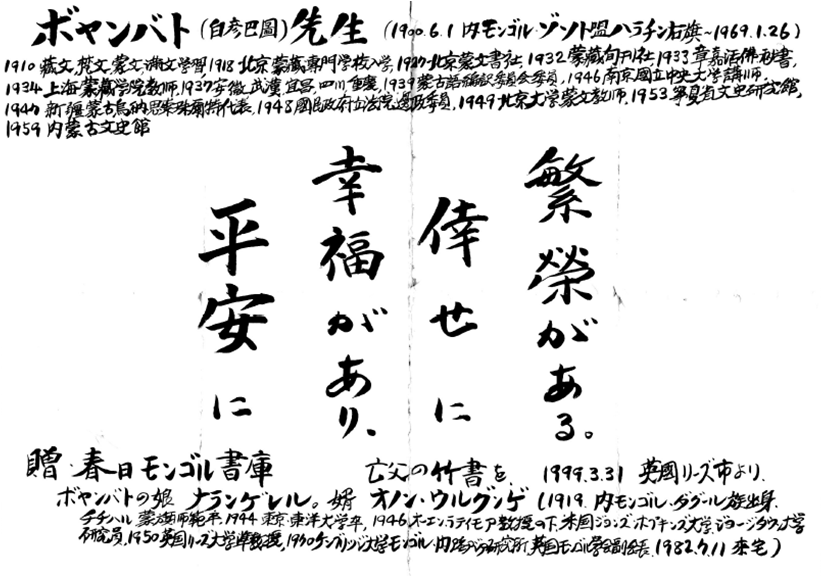 ボヤンバト(白彦巴圖)先生 (1900.6.1 内モンゴル・ゾソト盟ハラチン右旗~1969.1.26)
1910 蔵文、梵文、蒙文、満文学習、1918 北京蒙蔵専門学校入学、1927 北京蒙文書社、1932 蒙蔵旬刊社、1933 章嘉活佛秘書、
1934 上海蒙蔵学院教師、1937 安徽、武漢、宜昌、四川、重慶、1939 蒙古語編訳委員会委員、1946 南京國立中央大学講師、
1947 新疆蒙古烏納恩素珠 代表、1948 國民政府立法院 委員、1949 北京大学蒙文教師、1953 寧夏省文史研究館、
1959 内蒙古文史館
平安に
幸福があり、
倖せに
繁榮がある。
贈・春日モンゴル書庫 亡父の竹書を 1999.3.31 英國リーズ市より、
ボヤンバトの娘 ナランゲレル。婿 オノン・ウルグンゲ (1919 内モンゴル・ダグール族出身、
チチハル 蒙旗師範卒、1944 東京・東洋大学卒、1946 オーエン・ラティモア教授の下、米国ジョンズ・ホプキンズ大学、ジョージタウン大学
研究員、1950 英国リーズ大学準教授、1990 ケンブリッジ大学モンゴル・内陸アジア研究所、英国モンゴル学会副会長、1982.7.11 来宅)